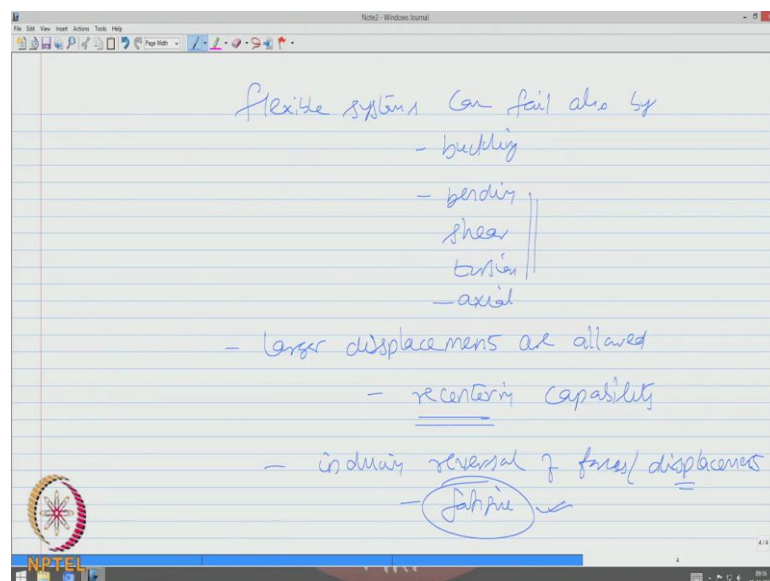 Note2 - Windows Journal
File Edit View Insert Actions Tools Help
Page Width
flexible systems can fail also by
- buckling
- bending
shear
torsion
- axial
- larger displacements are allowed
- recentering capability
- inducing reversal of forces/displacements
- fatigue
NPTEL
4/4
4